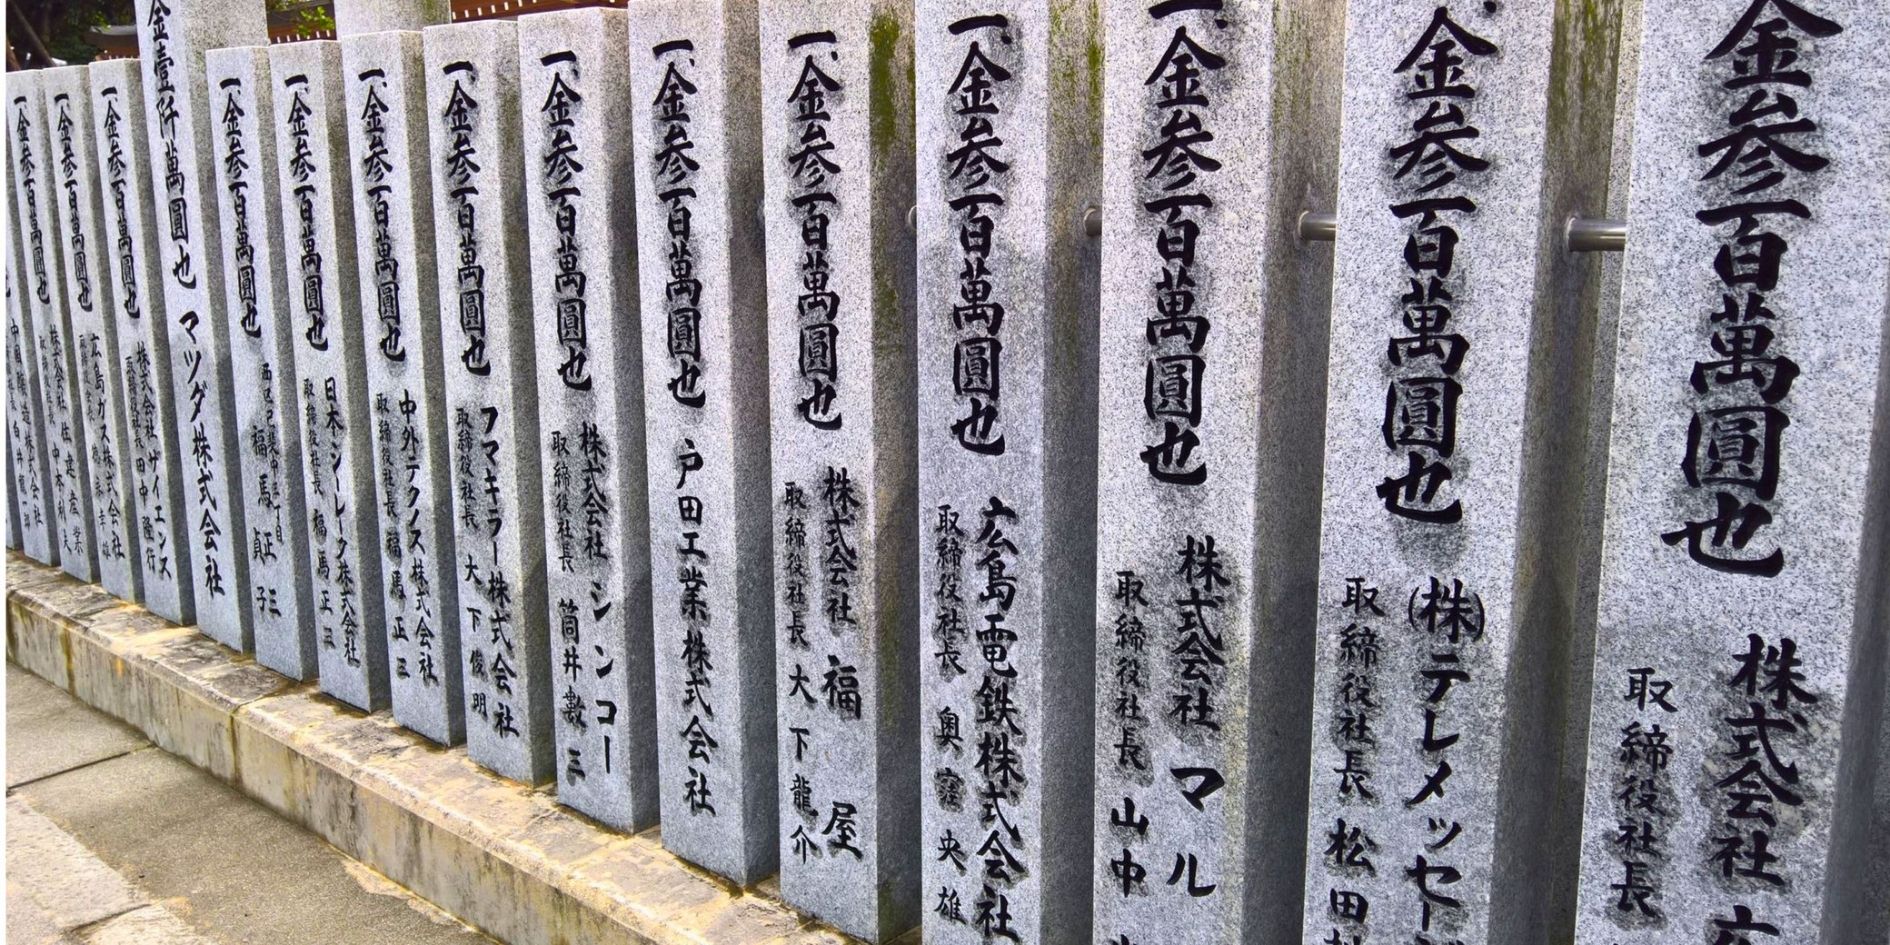 金参百萬圓也
株式会社
取締役社長
一、金参百萬圓也
(株)テレメッセー
取締役社長 松田
一、金参百萬圓也
株式会社マル
取締役社長 山中
一、金参百萬圓也
広島電鉄株式会社
取締役社長 奥窪央雄
一、金参百萬圓也
株式会社 福屋
取締役社長 大下龍介
一、金参百萬圓也
戸田工業株式会社
一、金参百萬圓也
株式会社 シンコー
取締役社長 筒井數三
一、金参百萬圓也
フマキラー株式会社
取締役社長 大下俊明
一、金参百萬圓也
中外テクノス株式会社
取締役社長 福馬正三
一、金参百萬圓也
日本シーレーク株式会社
取締役社長 福馬正三
一、金参百萬圓也
正三
福馬貞子
金壹阡萬圓也
マツダ株式会社
一、金参百萬圓也
株式会社サイエンス
取締役社長田中隆行
一、金参百萬圓也
広島ガス株式会社
一、金参百萬圓也
株式会社住建産業
取締役社長 中本利夫
一、金参百萬圓也
中国醸造株式会社